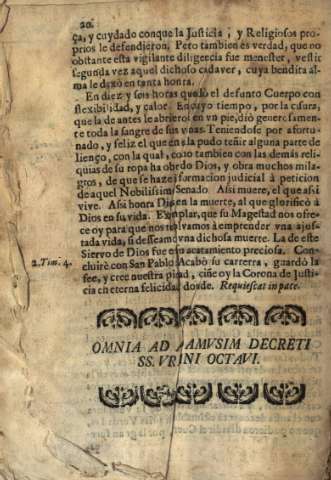 20.
ça, y cuydado con que la Justicia, y Religiosos pro-
prios le defendieron. Pero tambien es verdad, que no
obstante esta vigilante diligencia fue menester, vestir
segunda vez aquel dichoso cadaver, cuya bendita al-
ma le dexò en tanta honra.
En diez y seis horas quedò el defunto Cuerpo con
flexibilidad, y calor. En cuyo tiempo, por la cisura,
que la de antes le abrieron en vn pie, diò generosamen-
te toda la sangre de sus venas. Teniendose por afortu-
nado, y feliz el que en ella pudo teñir alguna parte de
lienço, con la qual, como tambien con las demàs reli-
quias de su ropa ha obrado Dios, y obra muchos mila-
gros, de que se haze informacion judicial à peticion
de aquel Nobilissimo Senado. Assi muere, el que assi
vive. Assi honra Dios en la muerte, al que glorificò à
Dios en su vida. Exemplar, que su Magestad nos ofre-
ce oy para que nos resolvamos à emprender vna ajus-
tada vida, si desseamos vna dichosa muerte. La de este
Siervo de Dios fue en su acatamiento preciosa. Con-
2. Tim. 4. cluirè con San Pablo: Acabò su carrera, guardò la
fee, y cree nuestra piedad, ciñe oy la Corona de Justi-
cia en eterna felicidad donde. Requiescat in pace.
OMNIA AD AAMVSIM DECRETI
SS. VRBANI OCTAVI.